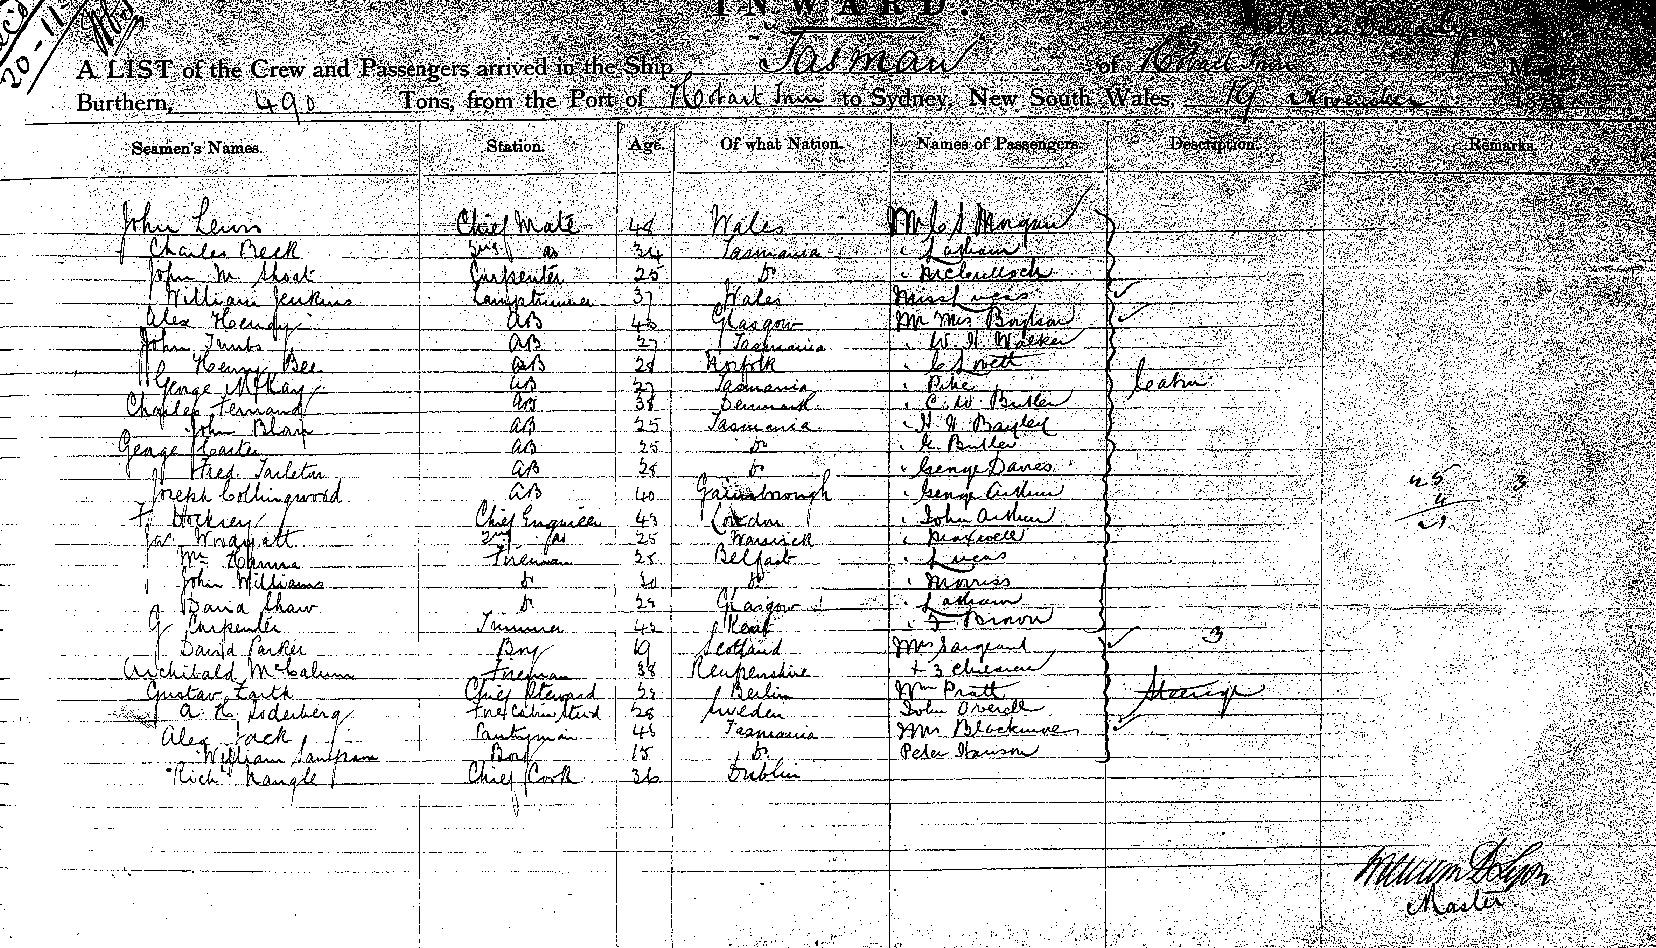 20-11
INWARD.
A LIST of the Crew and Passengers arrived in the Ship Tasman of Hobart
Burthern, 490 Tons, from the Port of Hobart Town to Sydney, New South Wales, 19 November
Seamen's Names. Station. Age. Of what Nation. Names of Passengers. Description. Remarks.
John Lewis Chief Mate 48 Wales Mr C S Morgan
Charles Beck 2nd do 34 Tasmania " Latham
John M Short Carpenter 25 Do " McCulloch
William Jenkins Lamptrimmer 37 Wales Miss Lucas
Alex Hendy AB 43 Glasgow Mr Mrs
John AB 27 Tasmania " W H Walker
Henry Bee AB 28 Norfolk " C Lovett
George McKay AB 27 Tasmania " Pike Cabin
Charles AB 38 Denmark " C. W. Butler
John Blair AB 25 Tasmania " H W Bayley
George AB 25 Do " G Butler
Fred Tarleton AB 28 Do " George Davies
Joseph Collingwood AB 40 Gainsborough " George Arthur 3
F. Hockney Chief Engineer 43 London " John Arthur
Jas Woodyatt 2nd do 25 Warwick " Maxwell
Wm Hanna Fireman 28 Belfast " Lucas
John Williams Do 30 Do " Morriss
David Shaw Do 28 Glasgow " Latham
G Carpenter Trimmer 43 Kent " F Brown
David Parker Boy 19 Scotland Mrs Sargeant 3
Archibald McCalum Fireman 38 + 3 children
Gustav Chief Steward 28 Berlin Wm Pratt Steerage
A. H. Soderberg Fore Cabin Stwd 28 Sweden John Overell
Alex Jack Pantryman 48 Tasmania Mrs Blackmore
William Sampson Boy 15 Do. Peter
Rich Nangle Chief Cook 36 Dublin
Lyon
Master